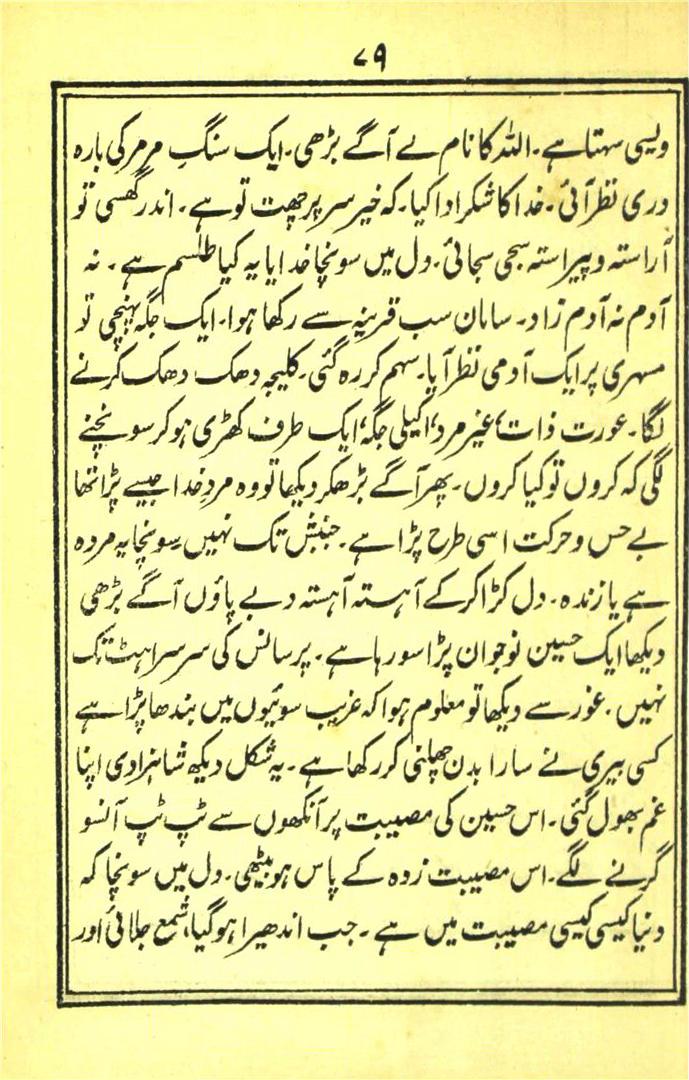 ۷۹
ویسی سہتا ہے۔ اللہ کا نام لے آگے بڑھی۔ ایک سنگِ مرمر کی بارہ
دری نظر آئی۔ خدا کا شکر ادا کیا۔ کہ خیر سر پر چھت تو ہے۔ اندر گھسی تو
آراستہ و پیراستہ سجی سجائی۔ دل میں سونچا خدایا یہ کیا طلسم ہے۔ نہ
آدم نہ آدم زاد۔ سامان سب قرینہ سے رکھا ہوا۔ ایک جگہ پہنچی تو
مسہری پر ایک آدمی نظر آیا۔ سہم کر رہ گئی۔ کلیجہ دھک دھک کرنے
لگا۔ عورت ذات، غیر مرد، اکیلی جگہ، ایک طرف کھڑی ہو کر سونچنے
لگی کہ کروں تو کیا کروں۔ پھر آگے بڑھکر دیکھا تو وہ مردِ خدا جیسے پڑا تھا
بے حس و حرکت اسی طرح پڑا ہے۔ جنبش تک نہیں۔ سونچا یہ مردہ
ہے یا زندہ۔ دل کڑا کر کے آہستہ آہستہ دبے پاؤں آگے بڑھی
دیکھا ایک حسین نوجوان پڑا سو رہا ہے۔ پر سانس کی سرسراہٹ تک
نہیں۔ غور سے دیکھا تو معلوم ہوا کہ غریب سوئیوں میں بندھا پڑا ہے
کسی بیری نے سارا بدن چھلنی کر رکھا ہے۔ یہ شکل دیکھ شاہزادی اپنا
غم بھول گئی۔ اس حسین کی مصیبت پر آنکھوں سے ٹپ ٹپ آنسو
گرنے لگے۔ اس مصیبت زدہ کے پاس ہو بیٹھی۔ دل میں سونچا کہ
دنیا کیسی کیسی مصیبت میں ہے۔ جب اندھیرا ہو گیا، شمع جلائی اور